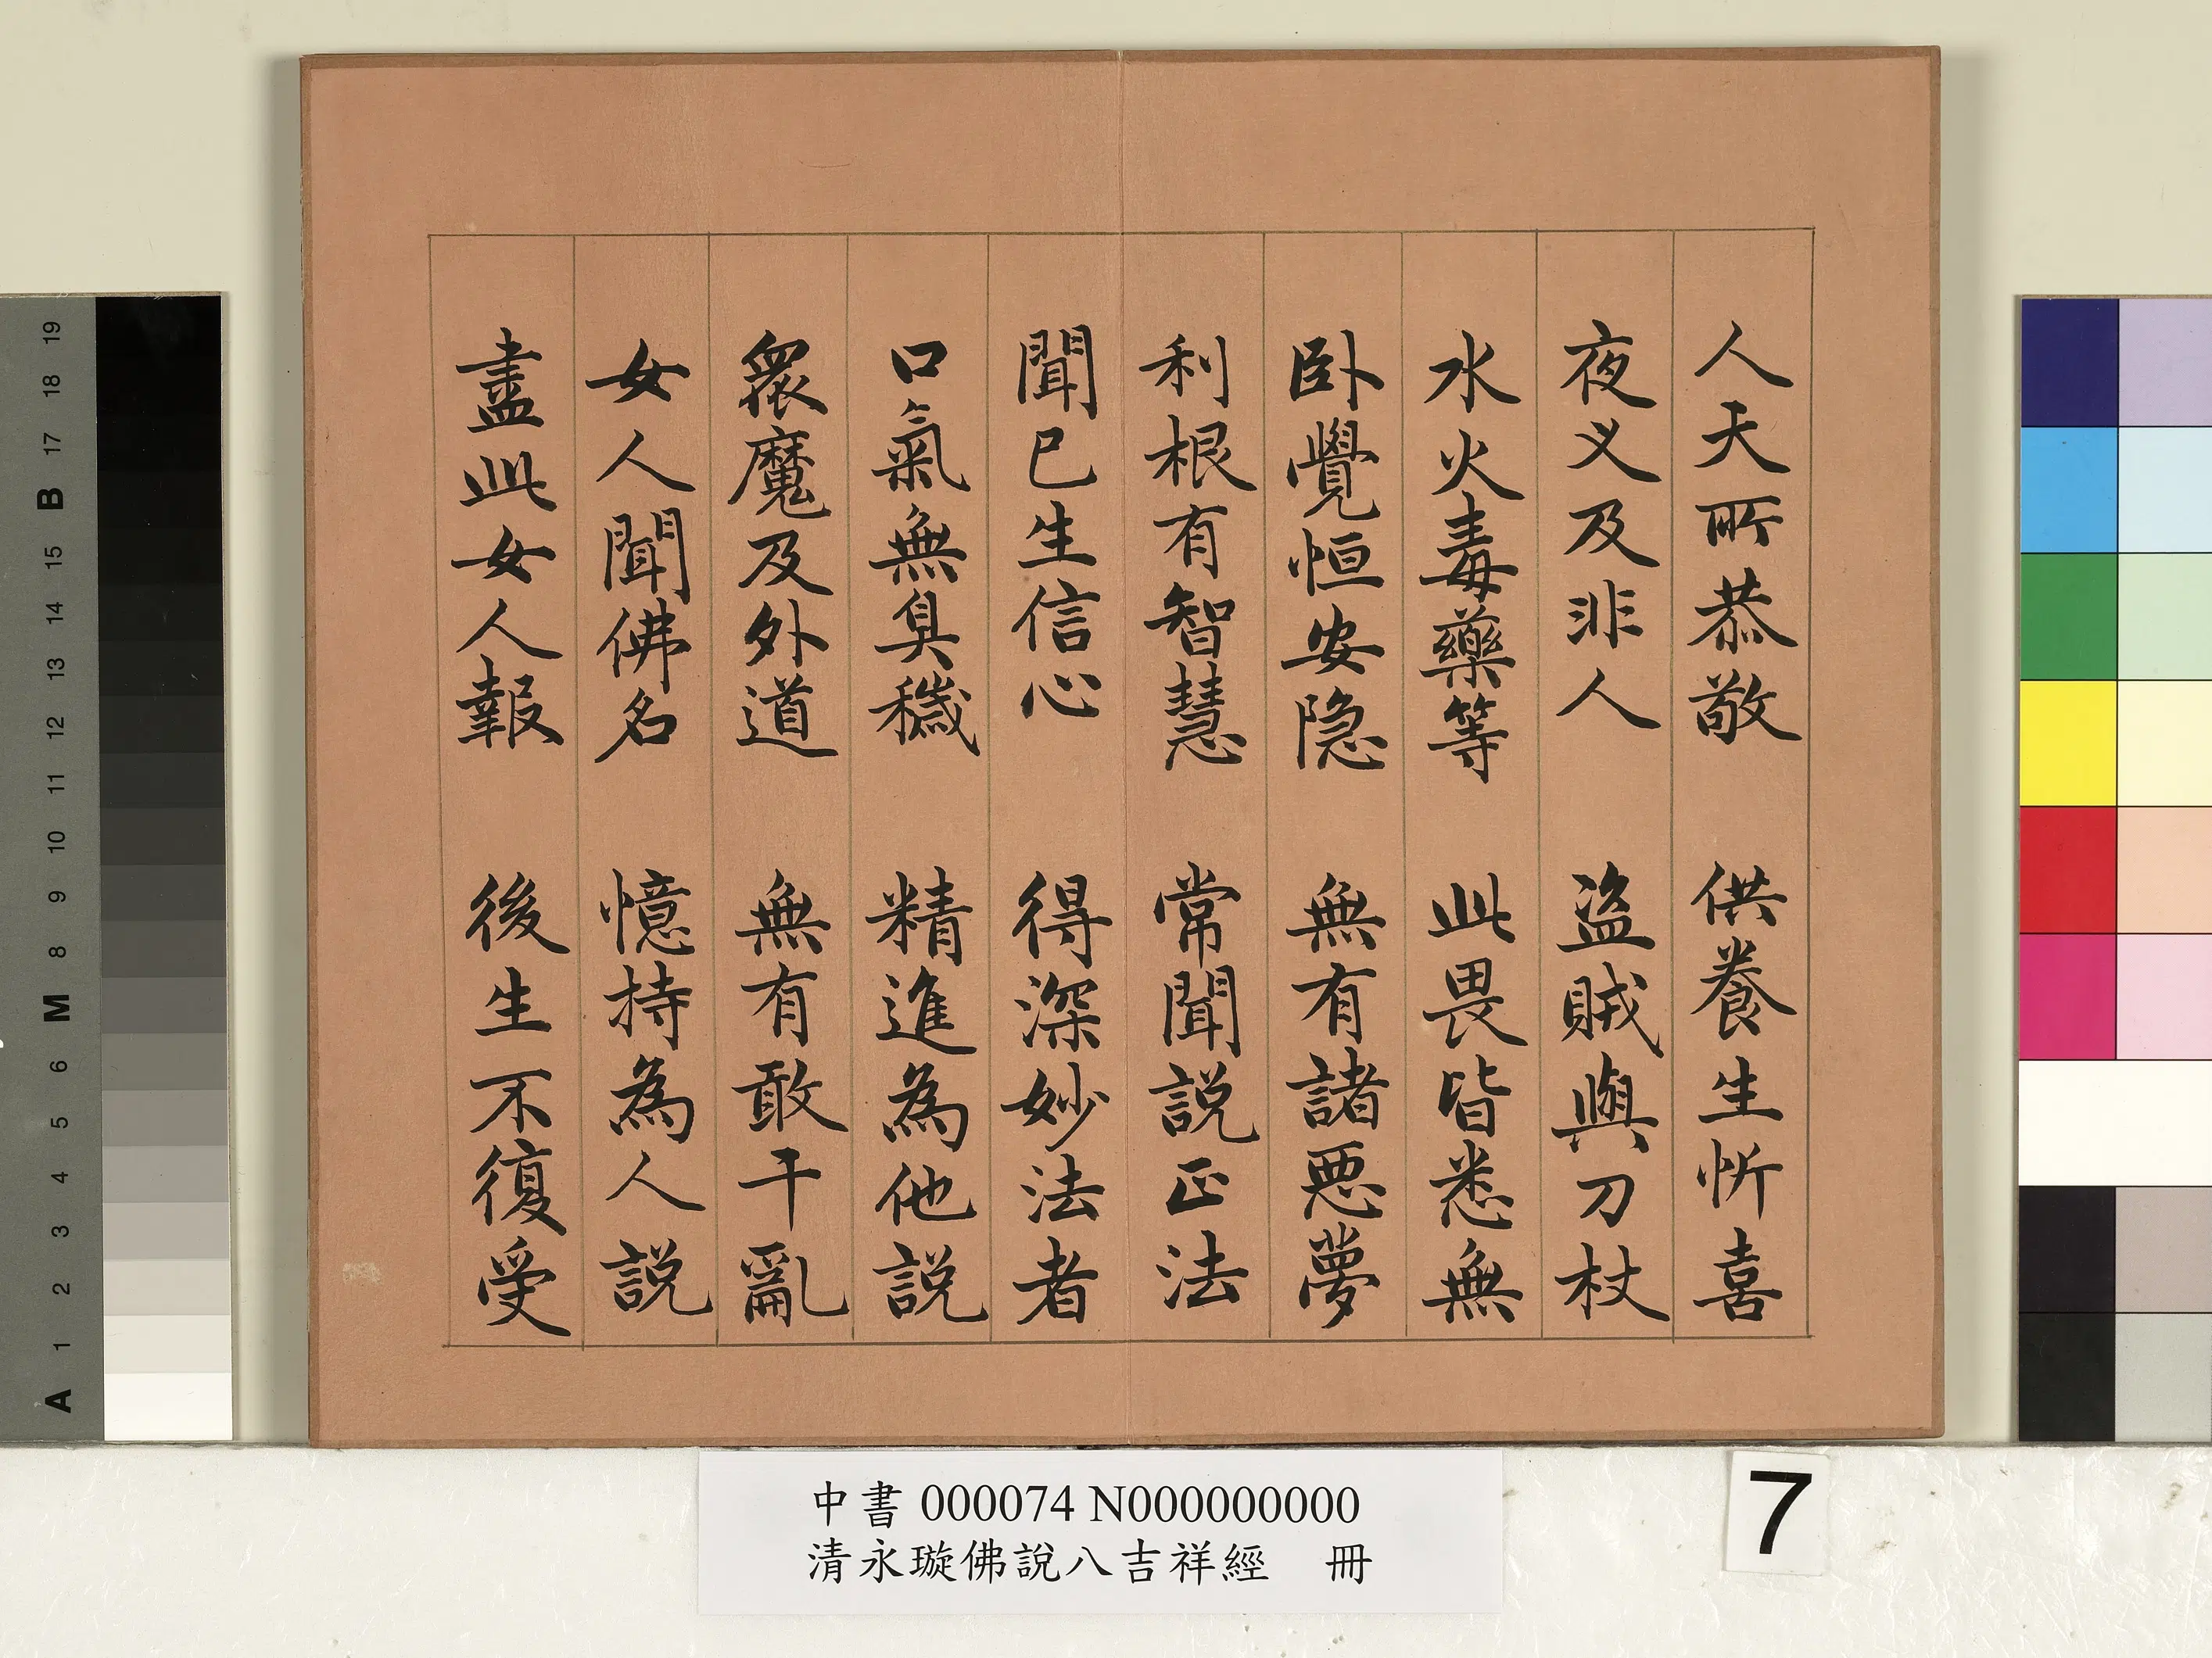 人天所恭敬　供養生忻喜
夜叉及非人　盜賊與刀杖
水火毒藥等　此畏皆悉無
卧覺恒安隱　無有諸惡夢
利根有智慧　常聞説正法
聞已生信心　得深妙法者
口氣無臭穢　精進為他説
衆魔及外道　無有敢干亂
女人聞佛名　憶持為人説
盡此女人報　後生不復受
中書 000074 N000000000
清永璇佛說八吉祥經　冊
7
19
18
17
B
15
14
13
12
11
10
9
8
M
6
5
4
3
2
1
A